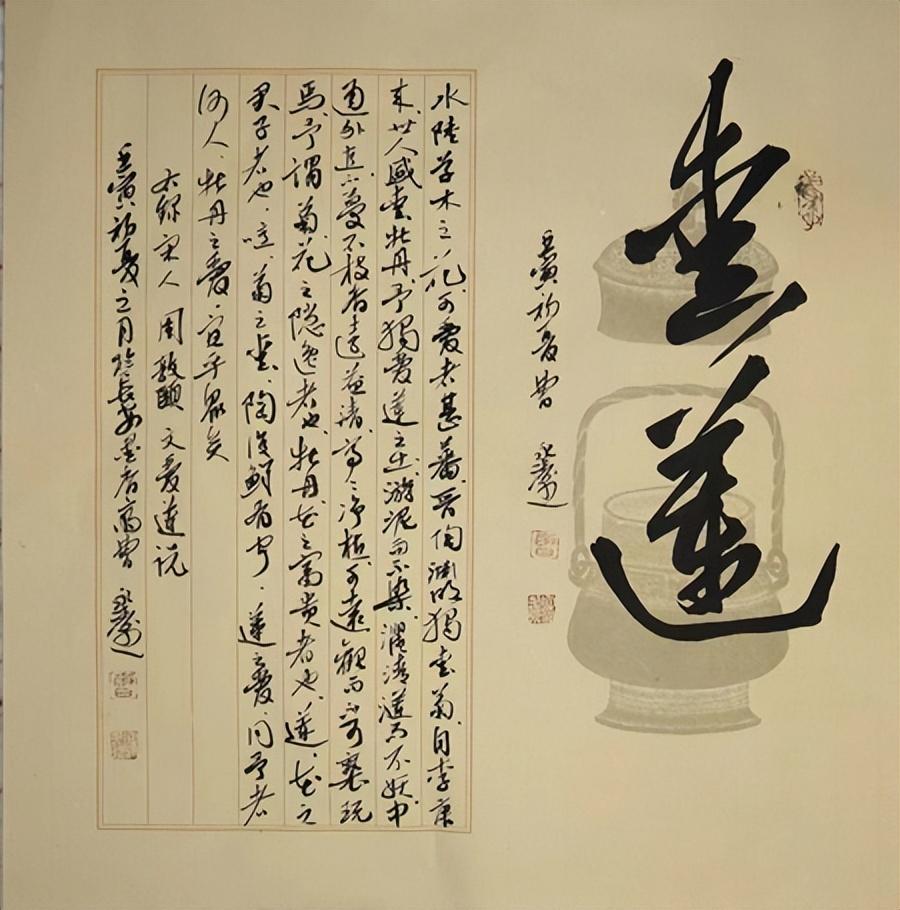 愛蓮
壬寅初夏曹
水陸草木之花可愛者甚蕃晉陶淵明獨愛菊自李唐
來世人盛愛牡丹予獨愛蓮之出淤泥而不染濯清漣而不妖中
通外直不蔓不枝香遠益清亭亭淨植可遠觀而不可褻玩
焉予謂菊花之隱逸者也牡丹花之富貴者也蓮花之
君子者也噫菊之愛陶後鮮有聞蓮之愛同予者
何人牡丹之愛宜乎眾矣
右錄宋人周敦頤文愛蓮說
壬寅初夏之月於長安墨香齋曹